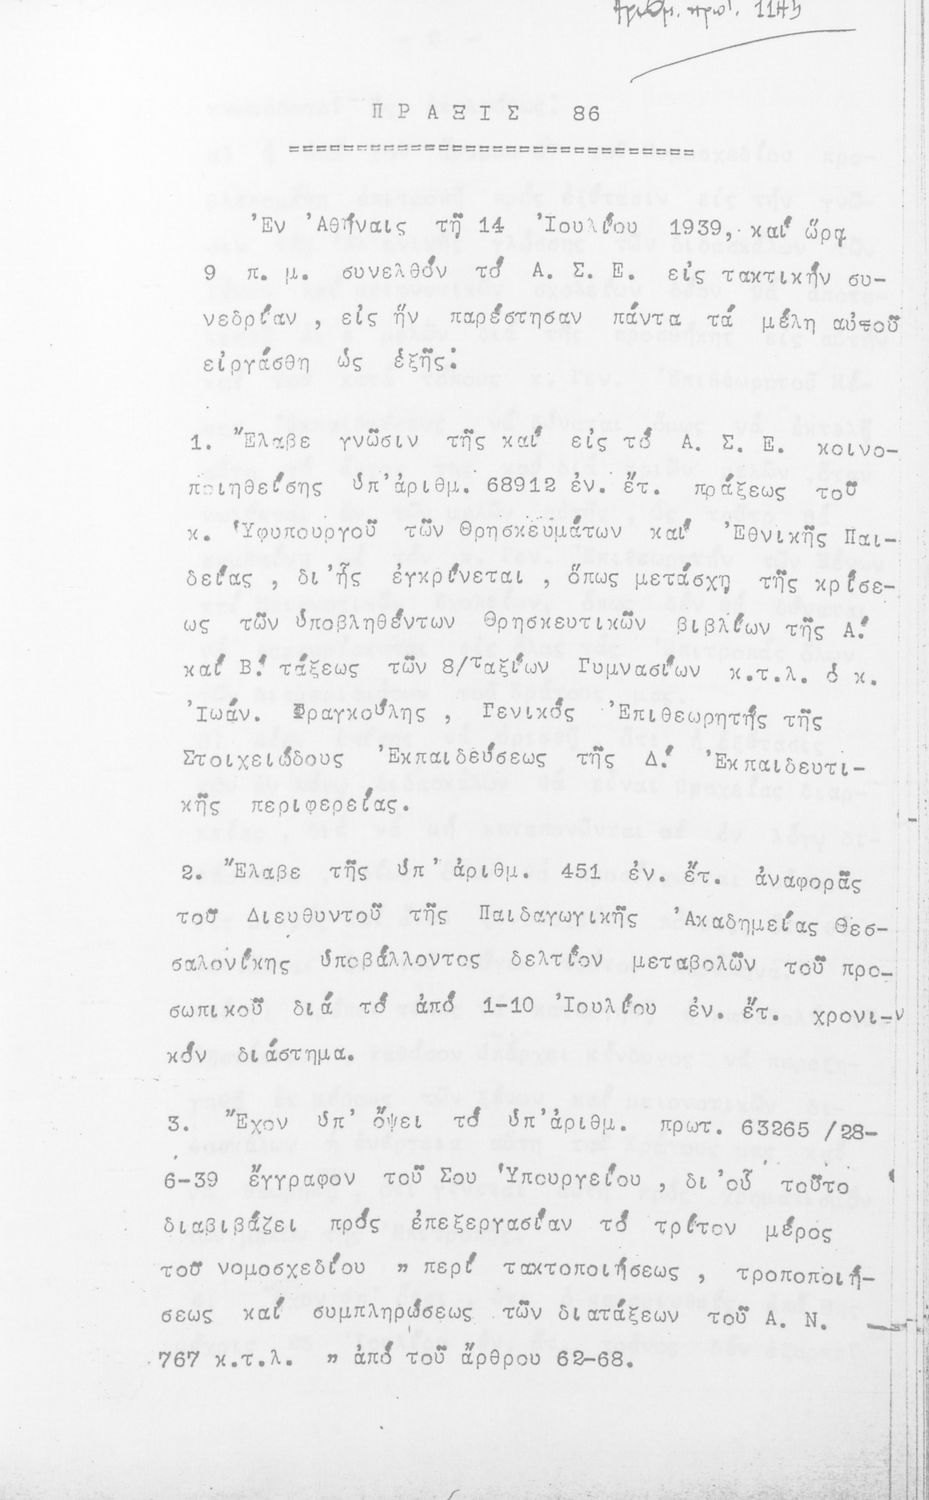 Ἀριθμ. πρωτ. 1145
ΠΡΑΞΙΣ 86
==============================
Ἐν Ἀθήναις τῇ 14 Ἰουλίου 1939, καί ὥρᾳ
9 π. μ. συνελθόν τό Α. Σ. Ε. εἰς τακτικήν συ-
νεδρίαν , εἰς ἥν παρέστησαν πάντα τά μέλη αὐτοῦ
εἰργάσθη ὡς ἑξῆς:
1. Ἔλαβε γνῶσιν τῆς καί εἰς τό Α. Σ. Ε. κοινο-
ποιηθείσης ὑπ' ἀριθμ. 68912 ἐν. ἔτ. πράξεως τοῦ
κ. Ὑφυπουργοῦ τῶν Θρησκευμάτων καί Ἐθνικῆς Παι-
δείας , δι' ἧς ἐγκρίνεται , ὅπως μετάσχῃ τῆς κρίσε-
ως τῶν ὑποβληθέντων Θρησκευτικῶν βιβλίων τῆς Α!
καί Β! τάξεως τῶν 8/ταξίων Γυμνασίων κ.τ.λ. ὁ κ.
Ἰωάν. Φραγκούλης , Γενικός Ἐπιθεωρητής τῆς
Στοιχειώδους Ἐκπαιδεύσεως τῆς Δ! Ἐκπαιδευτι-
κῆς περιφερείας.
2. Ἔλαβε τῆς ὑπ' ἀριθμ. 451 ἐν. ἔτ. ἀναφορᾶς
τοῦ Διευθυντοῦ τῆς Παιδαγωγικῆς Ἀκαδημείας Θεσ-
σαλονίκης ὑποβάλλοντος δελτίον μεταβολῶν τοῦ προ-
σωπικοῦ διά τό ἀπό 1-10 Ἰουλίου ἐν. ἔτ. χρονι-
κόν διάστημα.
3. Ἔχον ὑπ' ὄψει τό ὑπ' ἀριθμ. πρωτ. 63265 /28-
6-39 ἔγγραφον τοῦ Σου Ὑπουργείου , δι' οὗ τοῦτο
διαβιβάζει πρός ἐπεξεργασίαν τό τρίτον μέρος
τοῦ νομοσχεδίου " περί τακτοποιήσεως , τροποποιή-
σεως καί συμπληρώσεως τῶν διατάξεων τοῦ Α. Ν.
767 κ.τ.λ. " ἀπό τοῦ ἄρθρου 62-68.